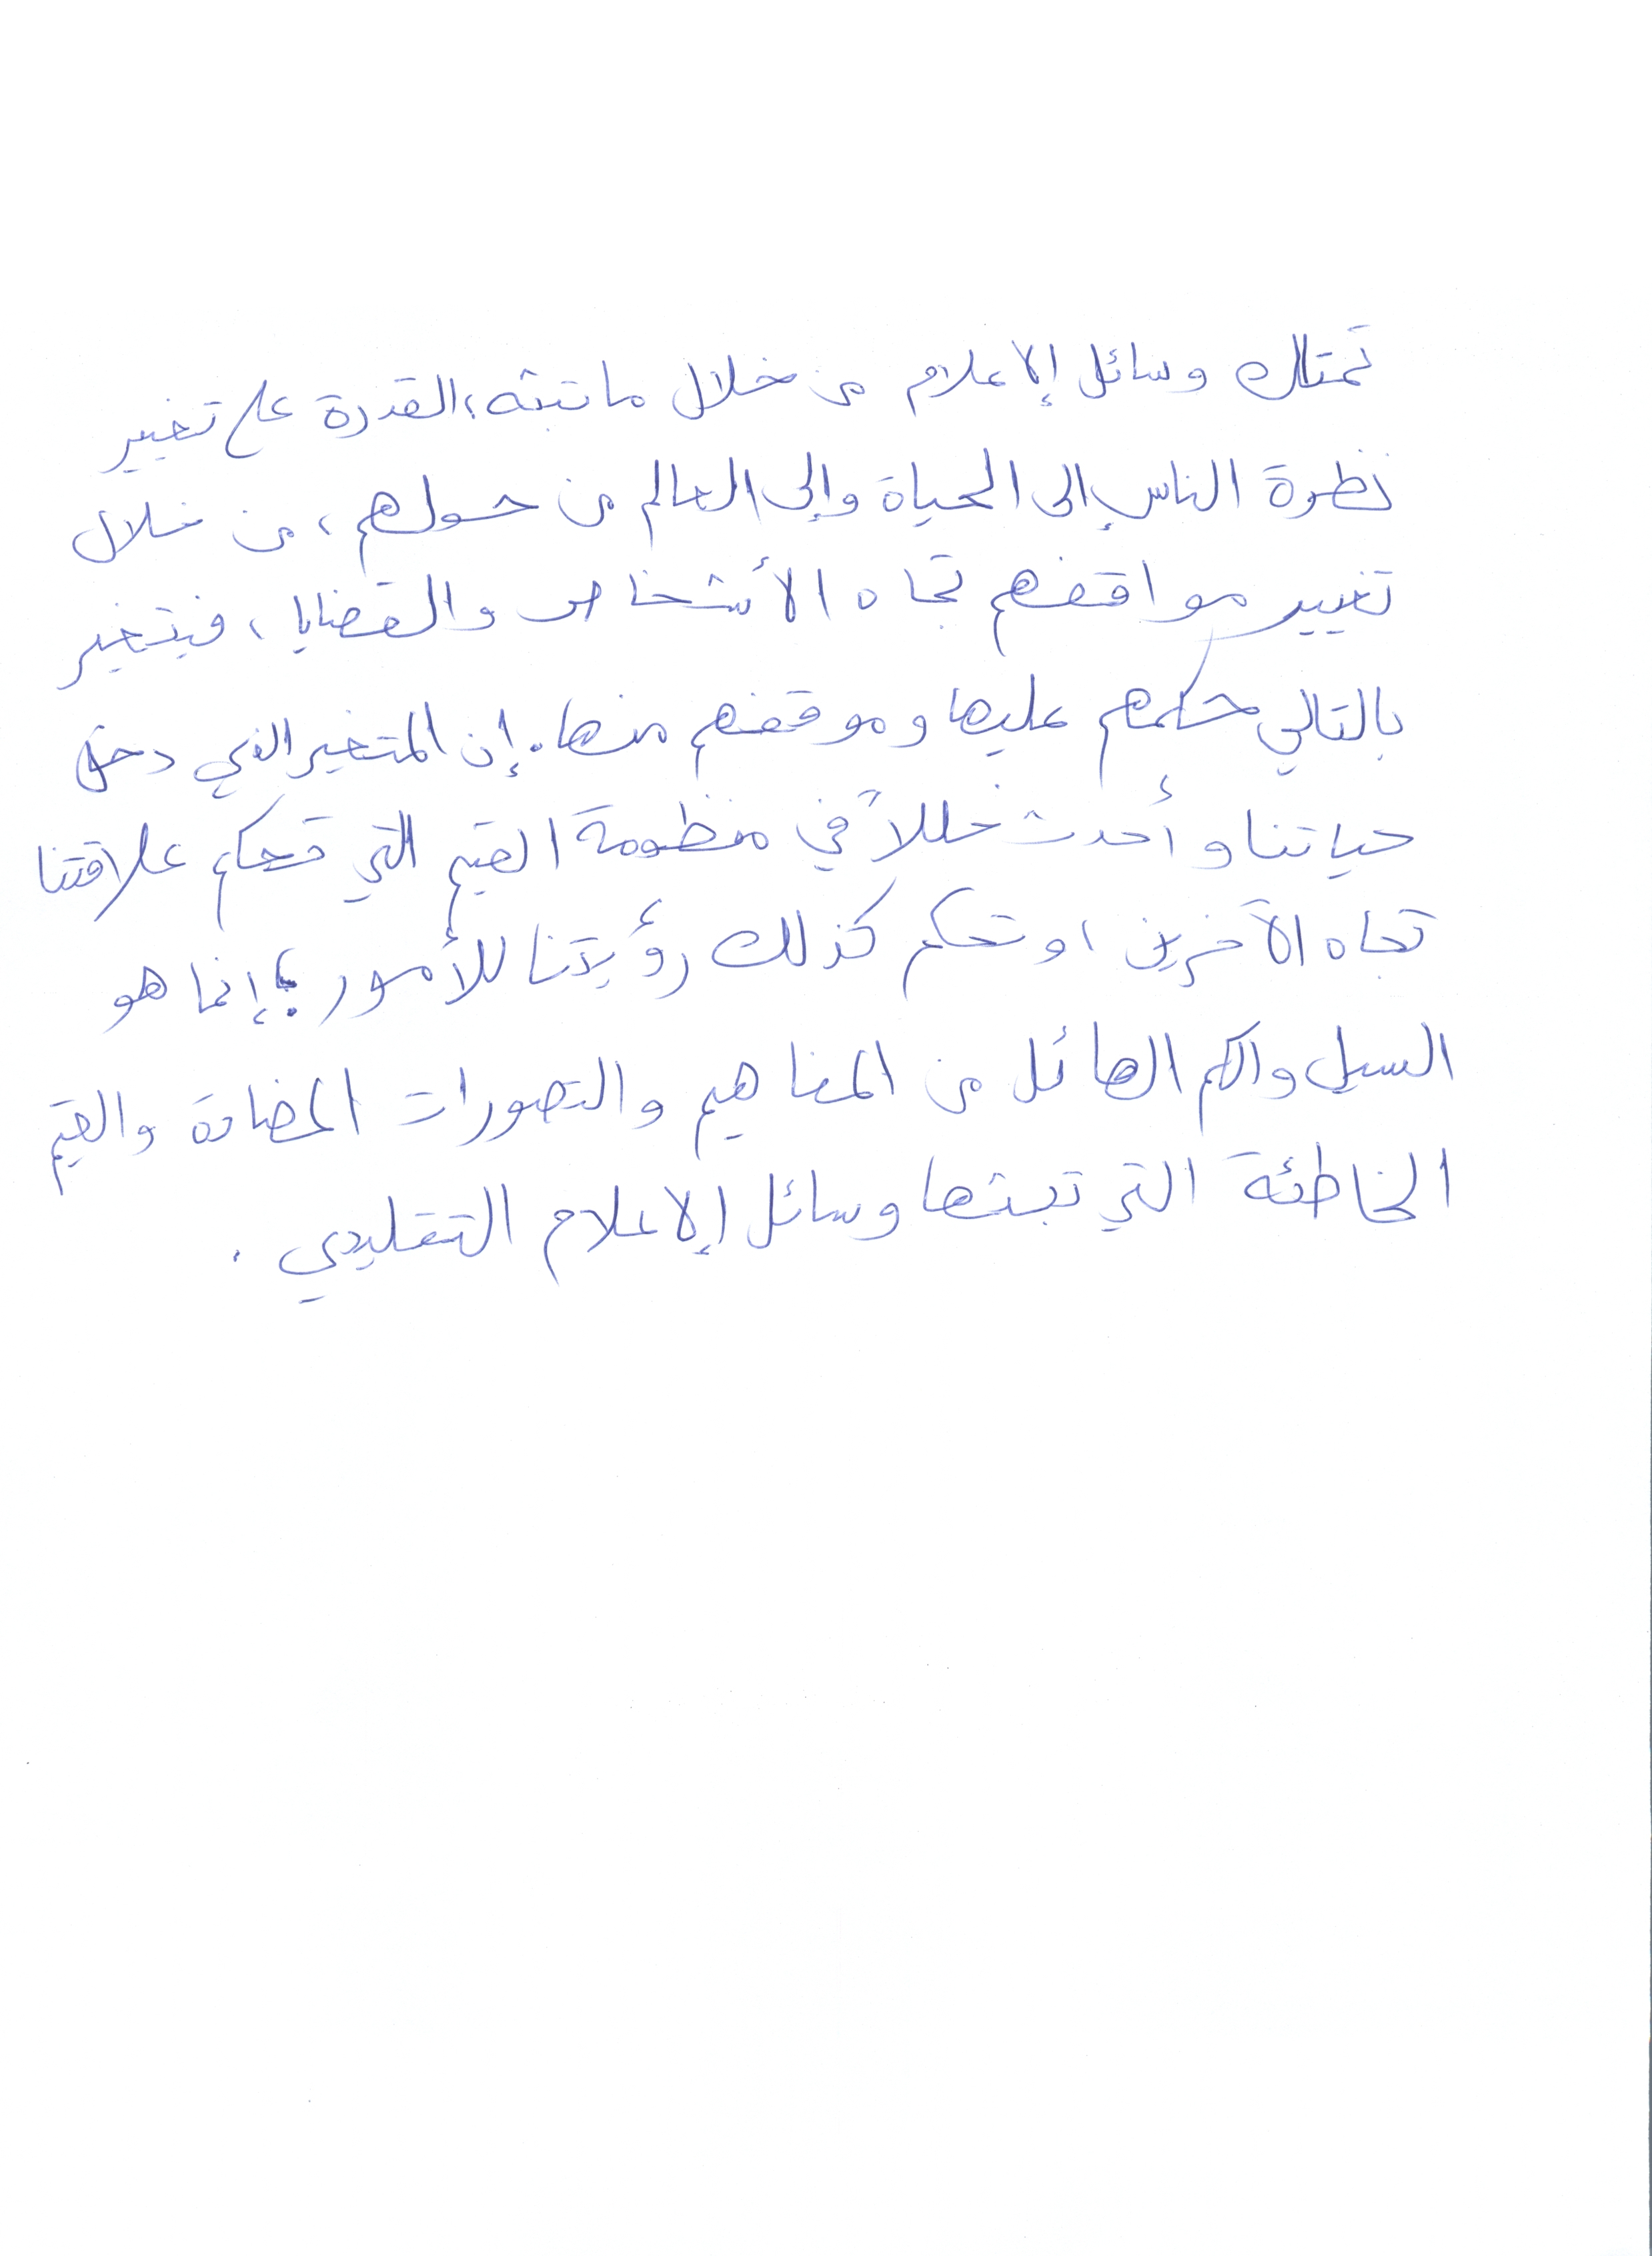 تمتلك وسائل الإعلام من خلال ما تبثه؛ القدرة على تغيير
نظرة الناس إلى الحياة وإلى العالم من حولهم، من خلال
تغيير مواقفهم تجاه الأشخاص والقضايا، فيتغير
بالتالي حكمهم عليها وموقفهم منها. إن المتغير الذي دخل
حياتنا وأحدث خللاً في منظومة القيم التي تحكم علاقتنا
تجاه الآخرين، وتحكم كذلك رؤيتنا للأمور؛ إنما هو
السيل والكم الهائل من المفاهيم والتصورات المضادة والقيم
الخاطئة التي تبثها وسائل الإعلام التقليدي.